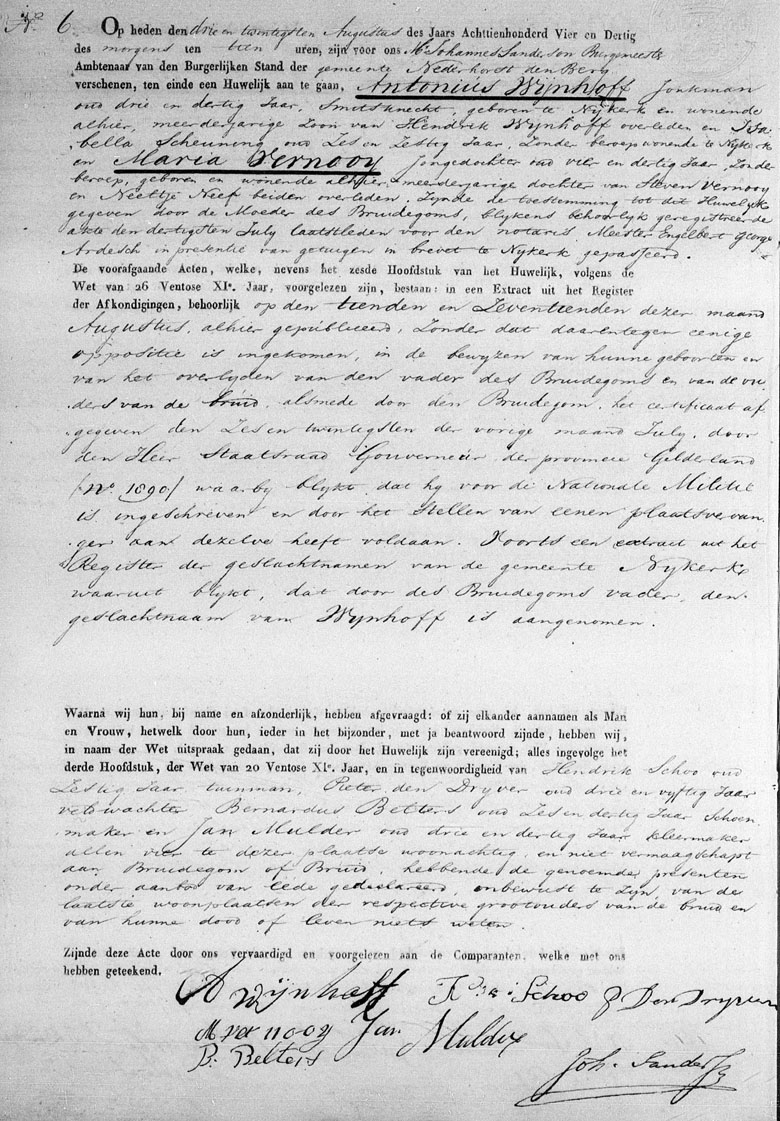 No 6. Op heden den drie en twintigsten Augustus des Jaars Achttienhonderd Vier en Dertig
des morgens ten tien uren, zijn voor ons Mr Johannes Sanderson Burgemeester
Ambtenaar van den Burgerlijken Stand der gemeente Nederhorst den Berg
verschenen, ten einde een Huwelijk aan te gaan, Antonius Wijnhoff Jonkman
oud drie en dertig Jaar, Smitsknecht, geboren te Nijkerk en wonende
alhier, meerderjarige Zoon van Hendrik Wijnhoff overleden en Isa
bella Scheuning oud Zes en Zestig Jaar, Zonder beroep wonende te Nijkerk
en Maria Vernooy Jongedochter oud vier en dertig Jaar, Zonder
beroep, geboren en wonende alhier, meerderjarige dochter van Steven Vernooy
en Neeltje Neef beiden overleden. Zynde de toestemming tot dit Huwelyk
gegeven door de Moeder des Bruidegoms, blykens behoorlyk geregistreerde
akte den dertigsten July laatstleden voor den notaris Meester Engelbert George
Ardesch in presentie van getuigen in brevet te Nykerk gepasseerd.
De voorafgaande Acten, welke, nevens het zesde Hoofdstuk van het Huwelijk, volgens de
Wet van 26 Ventose XIe. Jaar, voorgelezen zijn, bestaan: in een Extract uit het Register
der Afkondigingen, behoorlijk op den tienden en Zeventienden dezer maand
Augustus, alhier gepubliceerd, Zonder dat daarentegen eenige
oppositie is ingekomen, in de bewyzen van hunne geboorten en
van het overlyden van den vader des Bruidegoms en van de ou
ders van de bruid, alsmede door den Bruidegom, het certificaat af
gegeven den Zes en twintigsten der vorige maand July, door
den Heer Staatsraad Gouverneur der provincie Gelderland
(No 1890) waarby blykt dat hy voor de Nationale Militie
is ingeschreven en door het Stellen van eenen plaatsvervan
ger aan dezelve heeft voldaan. Voorts een extract uit het
Register der geslachtnamen van de gemeente Nykerk
waaruit blykt, dat door des Bruidegoms vader, den
geslachtnaam van Wynhoff is aangenomen.
Waarna wij hun, bij name en afzonderlijk, hebben afgevraagd: of zij elkander aannamen als Man
en Vrouw, hetwelk door hun, ieder in het bijzonder, met ja beantwoord zijnde, hebben wij,
in naam der Wet uitspraak gedaan, dat zij door het Huwelijk zijn vereenigd; alles ingevolge het
derde Hoofdstuk, der Wet van 20 Ventose XIe. Jaar, en in tegenwoordigheid van Hendrik Schoo oud
Zestig Jaar tuinman, Pieter den Dryver oud drie en vyftig Jaar
veldwachter Bernardus Betters oud Zes en dertig Jaar Schoen
maker en Jan Mulder oud drie en dertig Jaar kleermaker
allen vier te dezer plaatse woonachtig, en niet vermaagschapt
aan Bruidegom of Bruid, hebbende de genoemde presenten
onder aanbod van eede gedeclareerd, onbewust te Zyn, van de
laatste woonplaatsen der respective grootouders van de bruid en
van hunne dood of leven niets weten.
Zijnde deze Acte door ons vervaardigd en voorgelezen aan de Comparanten, welke met ons
hebben geteekend.
A Wijnhoff Schoo P Den Dryver
M vernooy Jan Mulder
B. Betters
Joh. Sanderson